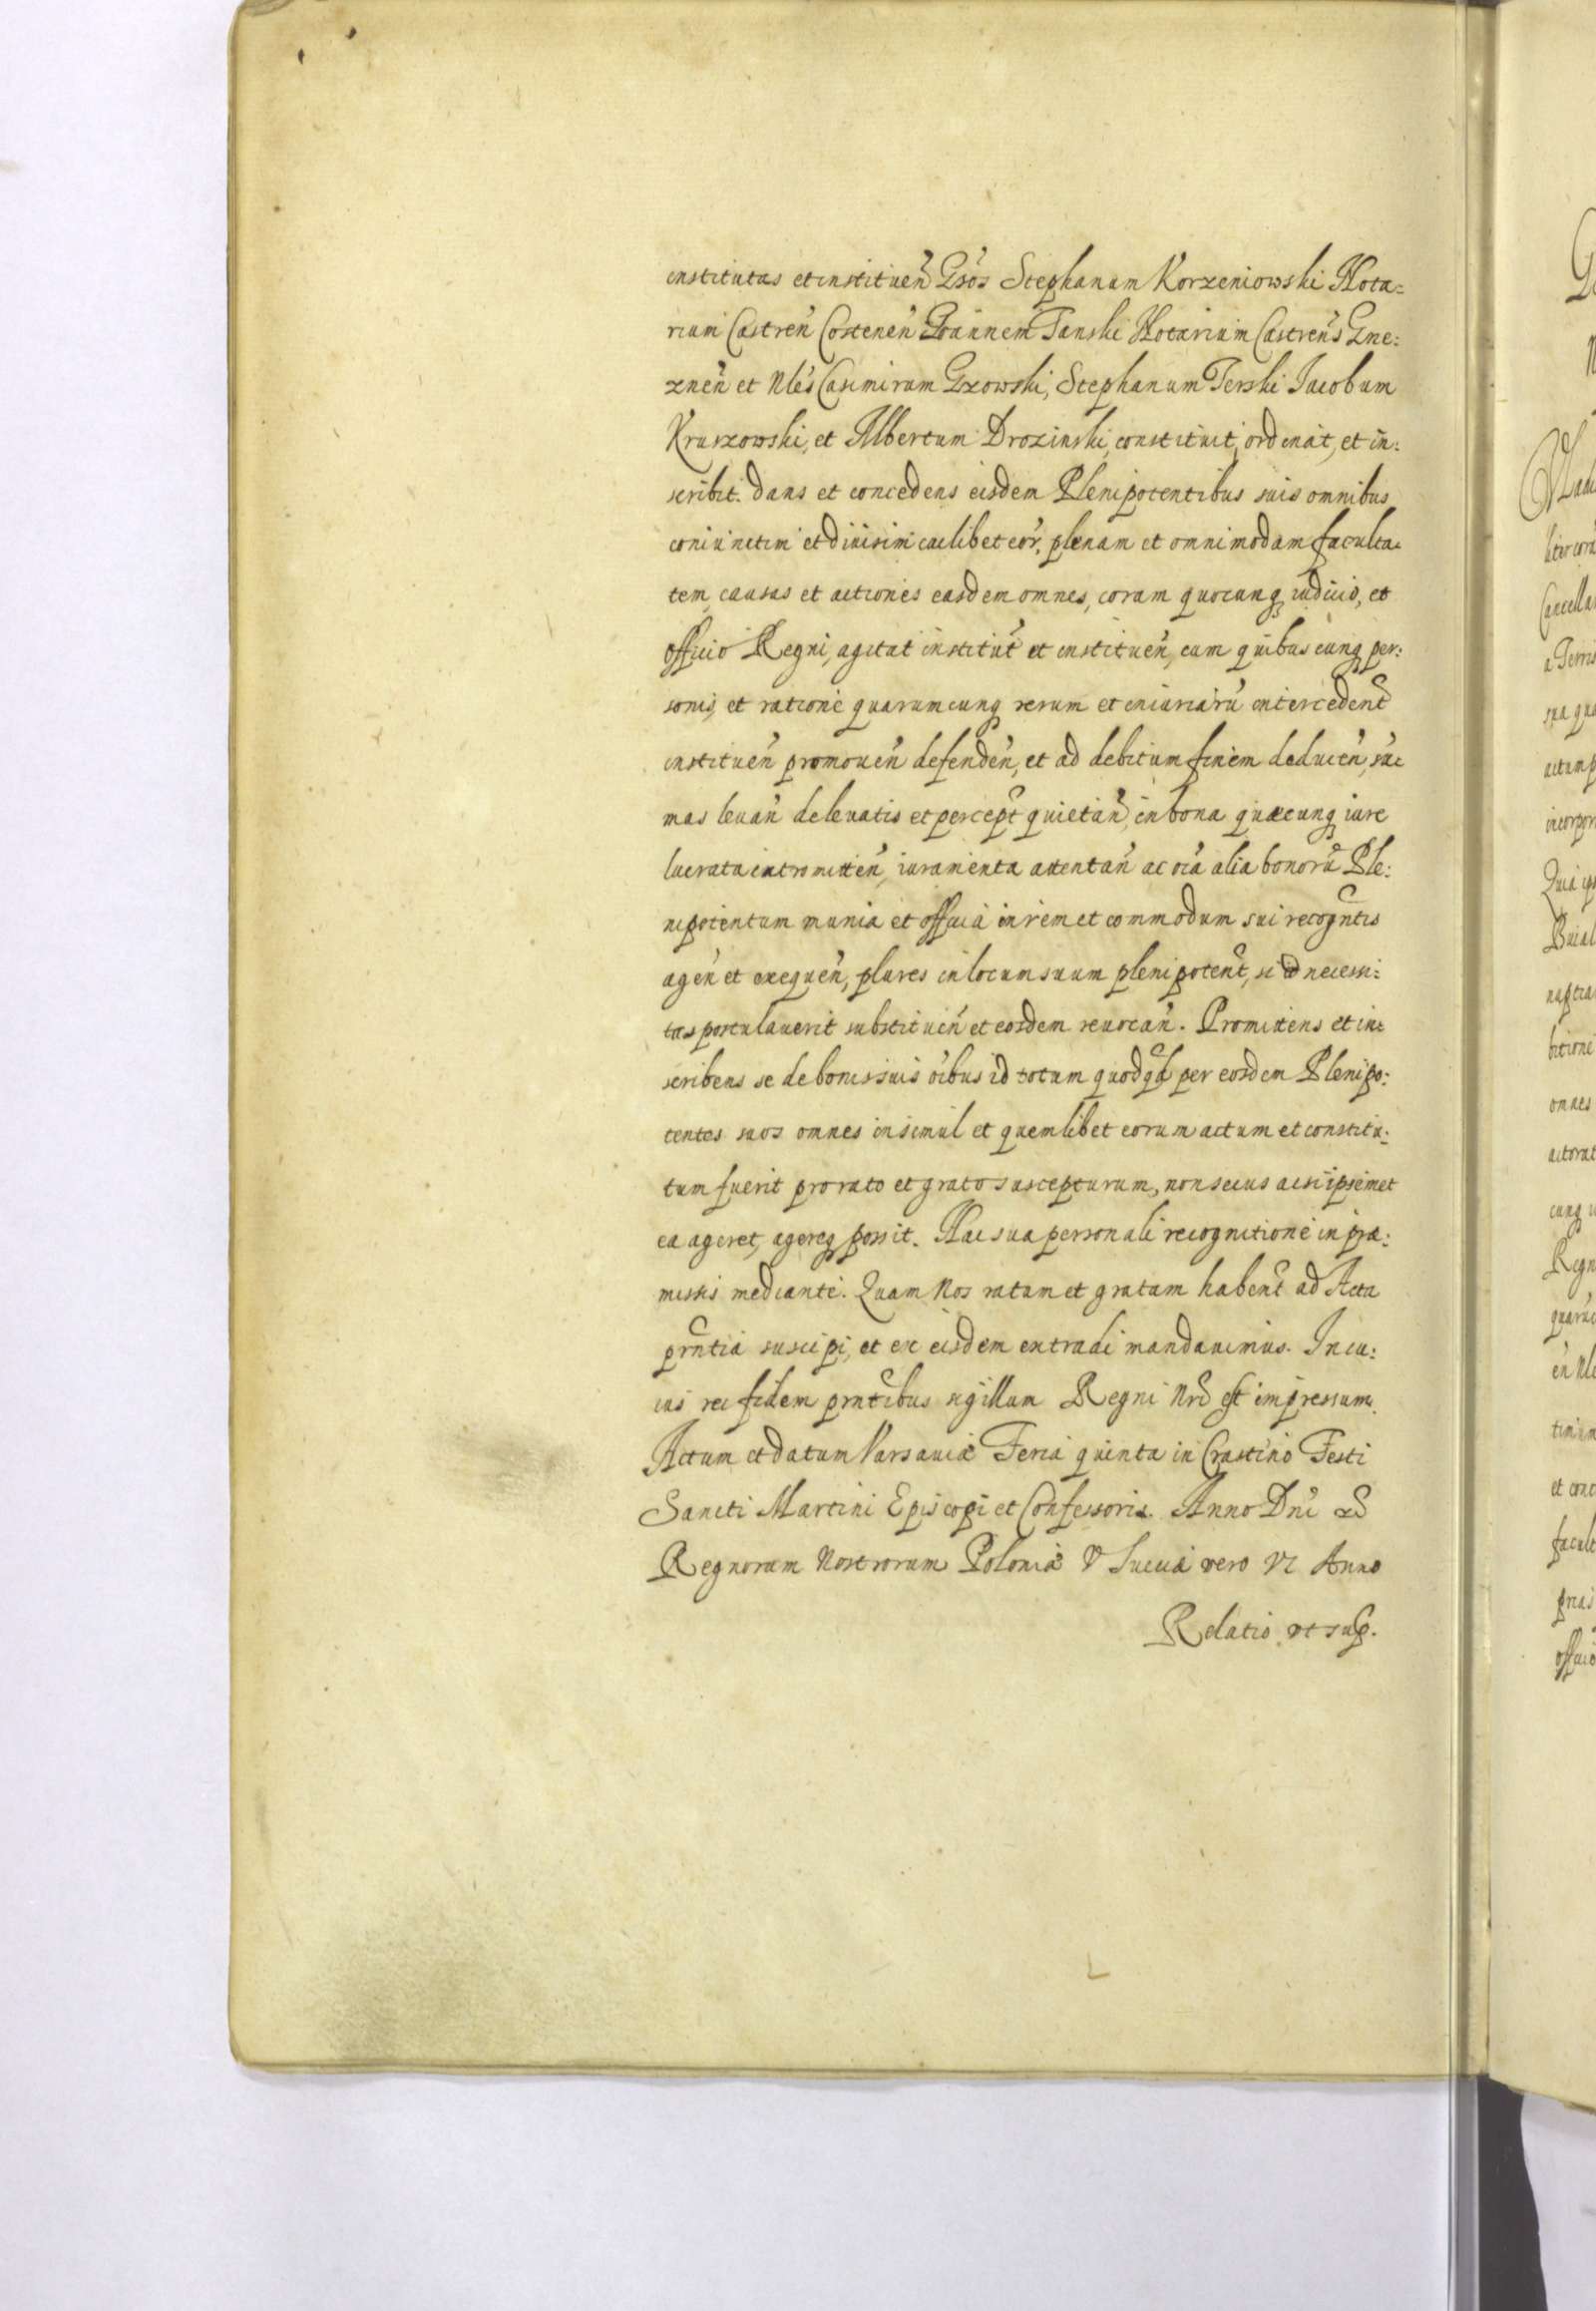 institutas et instituen̄ Gsos Stephanum Korzeniowski Nota=
rium Castren̄ Costenen̄ Ioannem Tanski Notarium Castrens Gne:
znen̄ et Nles Casimirum Gzowski, Stephanum Terski Iacobum
Kruszowski, et Albertum Drozinski, constituit, ordinat, et in:
scribit. dans et concedens eisdem Plenipotentibus suis omnibus
coniunctim et divisim cuilibet eor, plenam et omnimodam faculta=
tem, causas et actiones easdem omnes, coram quocunq iudicio, et
officio Regni, agitat institut et instituen̄, cum quibuscunq per:
sonis, et ratione quarumcunq rerum et iniuriarū intercedent
instituen̄ promouen̄ defenden̄, et ad debitum finem deducen̄, sūc
mas leuan̄ de leuatis et percept quietan̄, in bona quæcunq iure
lucrata intromitten̄, iuramenta attentan̄ ac oīa alia bonorū Ple:
nipotentum munia et officia in rem et commodum sui recogntis
agen̄ et exequen̄, plures in locum suum plenipotent, si id necessi:
tas postulauerit substituen̄ et eosdem reuocan̄. Promittens et in:
scribens se de bonis suis oībus id totum quodqd per eosdem Plenipo:
tentes suos omnes insimul et quemlibet eorum actum et constitu:
tum fuerit pro rato et grato suscepturum, non secus ac si ipsemet
ea ageret, agereq possit. Hac sua personali recognitione in præ:
missis mediante. Quam Nos ratam et gratam habent ad Acta
prntia suscipi, et ex eisdem extradi mandauimus. In cu:
ius rei fidem prntibus sigillum Regni Nrī est impressum.
Actum et datum Varsauiæ Feria quinta in Crastino Festi
Sancti Martini Episcopi et Confessoris. Anno Dni
Regnorum Nostrorum Poloniæ V Sueciæ vero VI Anno
Relatio ut sup.